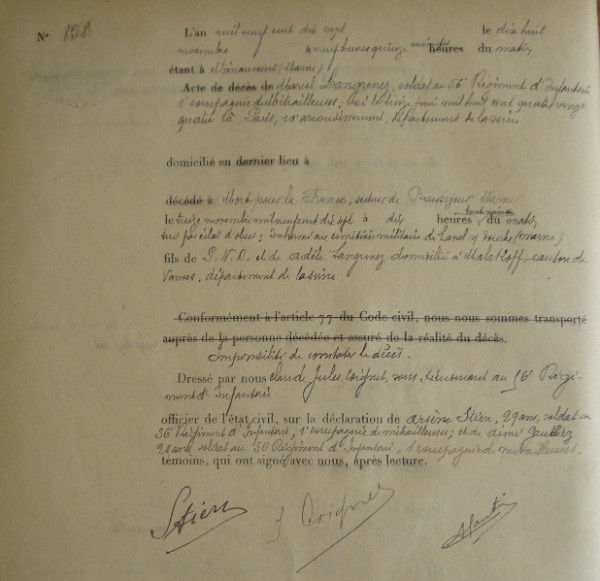 N° 858
L'an mil neuf cent dix sept le dix huit
novembre à neuf heures quinze minutes heures du matin
étant à Minaucourt (Marne)
Acte de décès de Marcel Langrenez, soldat au 56e Régiment d'Infanterie
1e compagnie de Mitrailleuses, né le treize juin mil huit cent quatre vingt
quatre à Paris, arrondissement, département de la Seine
domicilié en dernier lieu à
décédé à Mort pour la France, secteur de Beauséjour Marne
le treize novembre mil neuf cent dix sept à dix heures trente minutes du matin
tué par éclat d'obus; Inhumé au cimetière militaire de (Marne)
fils de P. N. D. et de Adèle Langrenez domiciliée à Malakoff canton de
Vanves, département de la Seine
Conformément à l'article 77 du Code civil, nous nous sommes transporté
auprès de la personne décédée et assuré de la réalité du décès.
Impossibilité de constater le décès.
Dressé par nous Claude Jules Coignet, sous Lieutenant au 56e Régi-
ment d'Infanterie
officier de l'état civil, sur la déclaration de Arsène Stien, 29 ans, soldat au
56e Régiment d'Infanterie, 1e compagnie de mitrailleuses; et de
28 ans, soldat au 56 Régiment d'Infanterie, 1e compagnie de mitrailleuses.
témoins, qui ont signé avec nous, après lecture.
Stien J. Coignet